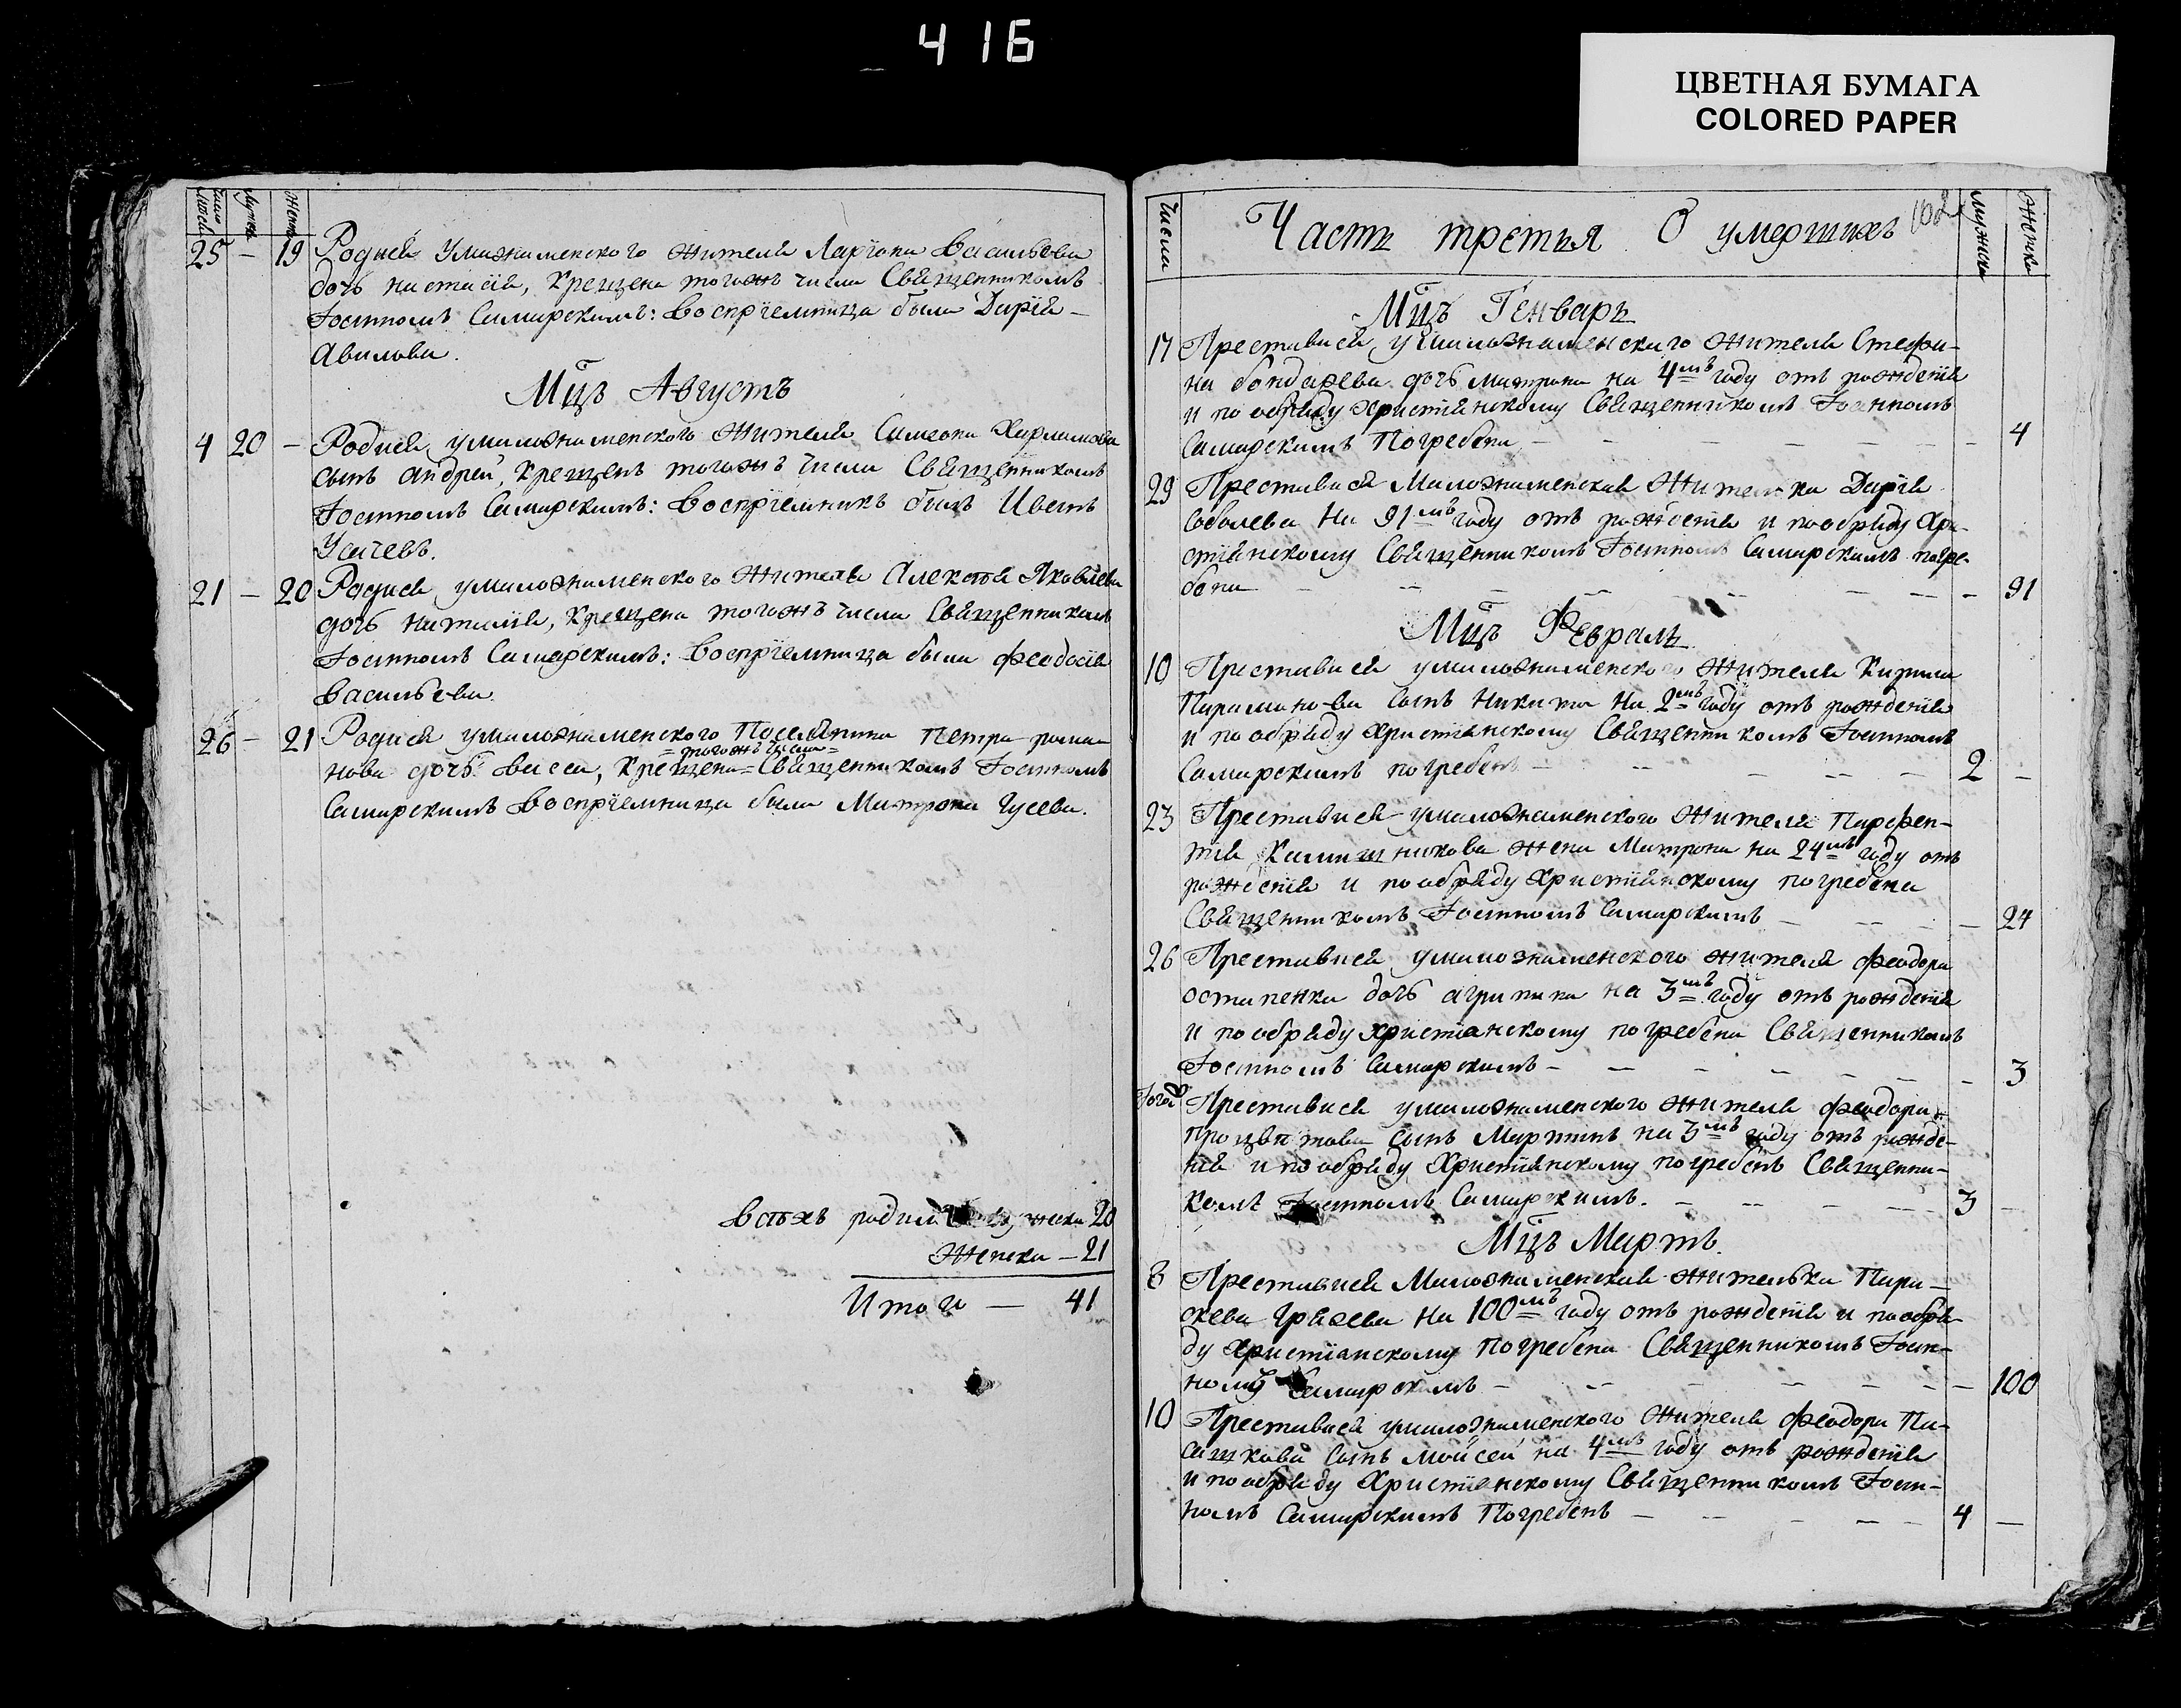 416
ЦВЕТНАЯ БУМАГА
COLORED PAPER
Число
Мужеск
Женск
25 — 19 Родися, Умилознаменского жителя Ларіона Васильева
дочь настасія, Крещена тогожъ числа Священникомъ
Іоанномъ Самарскимъ: Воспріемница была Дарія
Авилова.
Мцъ Августъ
4 20 — Родися, умилознаменского Жителя Самсона Харламова
сынъ андрей, Крещенъ тогожъ числа Священникомъ
Іоанномъ Самарскимъ: Воспріемникъ былъ Иванъ
Усачевъ.
21 — 20 Родися, умилознаменского Жителя Алексѣя Яковлева
дочь наталія, Крещена тогожъ числа Священникомъ
Іоанномъ Самарскимъ: Воспріемница была Феодосія
Васильева.
26 — 21 Родися умилознаменского Поселянина Петра рома-
=тогожъ числа=
нова дочь васса, Крещена=Священникомъ Іоанномъ
Самарскимъ Воспріемница была Матрона Гусева.
Всѣхъ родил 20
Женска — 21
Итого — 41
Числа
Часть третья О умершихъ
162
Мужска
Женска
Мцъ Генварь
17 Преставися, умилознаменского жителя Стефа-
на бондарева дочь матрона на 4мъ году отъ рожденія
и по обряду христіянскому Священникомъ Іоанномъ
Самарскимъ Погребена — 4
29 Преставися Милознаменская Жителка Дарія
Соболева На 91мъ году отъ рожденія и пообряду Хри-
стіянскому Священникомъ Іоанномъ Самарскимъ погре-
бена — 91
Мцъ Февраль
10 Преставися умилознаменского Жителя Кирила
Парамонова Сынъ Никита На 2мъ году отъ рожденія
и по обряду христіянскому Священникомъ Іоанномъ
Самарскимъ погребенъ — 2 —
23 Преставися умилознаменского Жителя Парфен-
тія Калашникова жена Матрона на 24мъ году отъ
рожденія и по обряду Христіянскому погребена
Священникомъ Іоанномъ Самарскимъ — 24
26 Преставися умилознаменского жителя Феодора
остапенка дочь агрипина на 3мъ году отъ рожденія
и по обряду христіанскому погребена Священникомъ
Іоанномъ Самарскимъ — 3
Преставися умилознаменского жителя Феодора
процвѣтова сынъ Мартинъ на 3мъ году отъ рожде-
нія и по обряду Христіянскому погребенъ Священни-
комъ Іоанномъ Самарскимъ. — 3 —
Мцъ Мартъ.
8 Преставися Милознаменская жителька Пара-
скева Грязева На 100мъ году отъ рожденія и по обря-
ду Христіанскому Погребена Священникомъ Іоан-
номъ Самарскимъ — 100
10 Преставися умилознаменского Жителя Феодора Па-
сашкова сынъ Моисей на 4мъ году отъ рожденія
и по обряду Христіянскому Священникомъ Іоан-
номъ Самарскимъ Погребенъ — 4 —